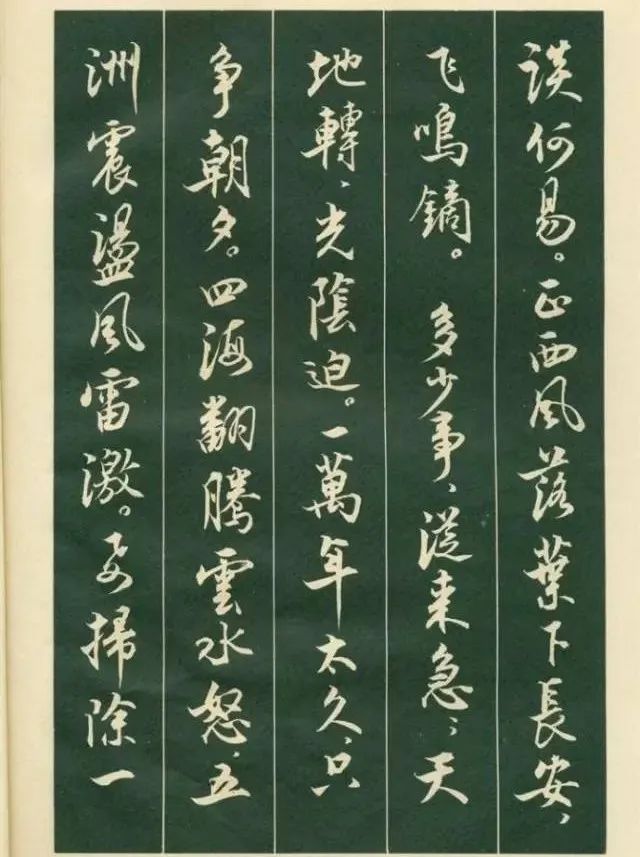 谈何易。正西风落葉下長安、
飞鳴鏑。 多少事、從来急；天
地轉、光陰迫。一萬年太久，只
争朝夕。四海翻騰雲水怒，五
洲震盪風雷激。要掃除一